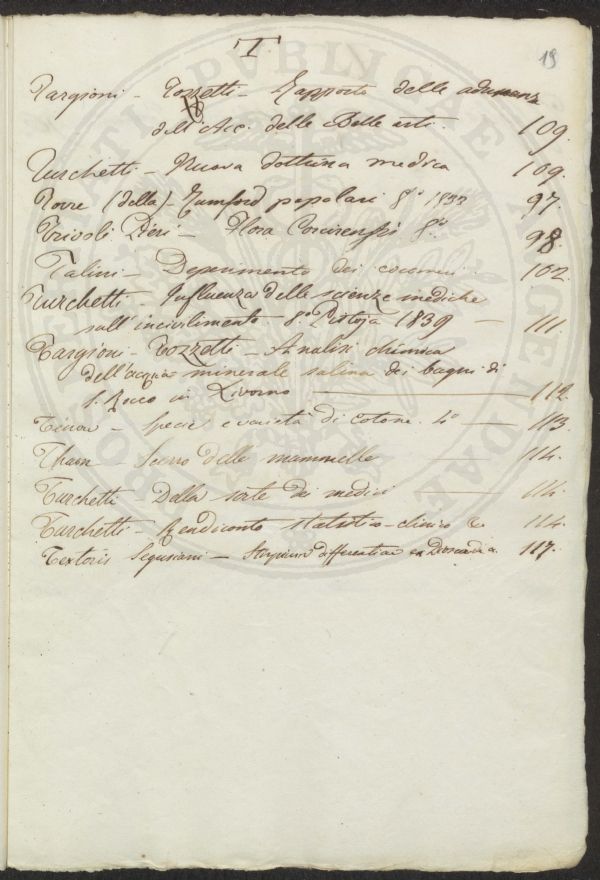 T
19
Targioni - Tozzetti - Rapporto delle adunanze
dell'Acc. delle Belle arti. 109.
Turchetti - Nuova dottrina medica 109.
Torre (della) - Rumford popolari 8.° 1833 97.
Trivoli Pieri - Flora Corcirensis 8.° 98.
Talini - Deperimento dei 102.
Turchetti - Influenza delle scienze mediche
sull'incivilimento 8.° Pistoja 1839 — 111.
Targioni - Tozzetti - Analisi chimica
dell'acqua minerale salina dei bagni di
S. Rocco in Livorno — 112.
Tenore - Specie e varietà di cotone. 4.° — 113.
Tham - Scirro delle mammelle — 114.
Turchetti - Della sorte dei medici — 114.
Turchetti - Rendiconto statistico-clinico &c. 114.
Textoris Segusiani - Stirpium differentiae ex Dioscoride. 117.
PUBLICAE